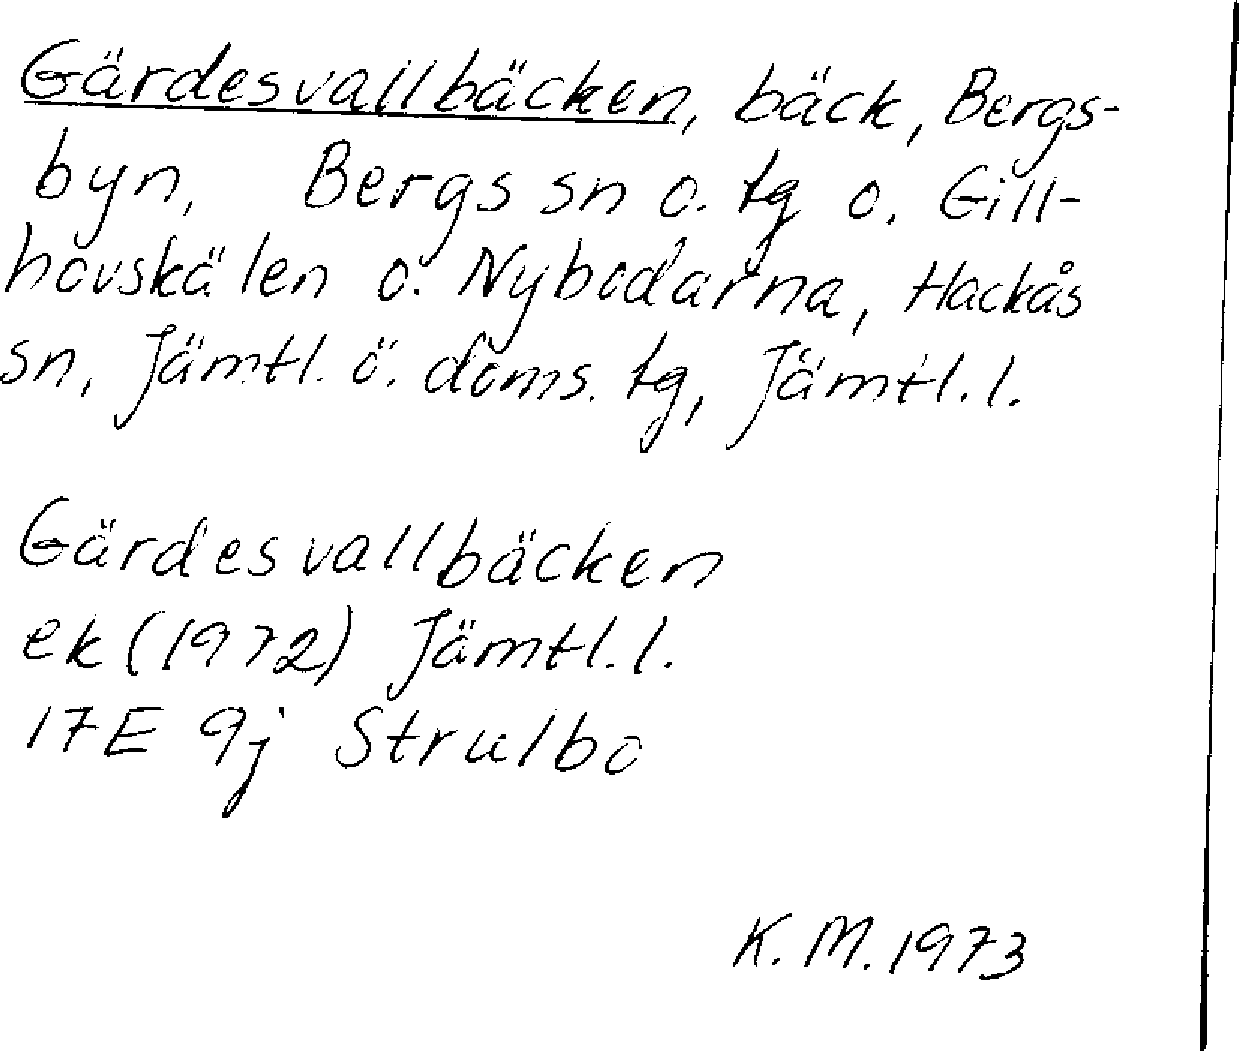 Gärdesvallbäcken, bäck, Bergs-
byn, Bergs sn o. tg o. Gill-
hovskälen o. Nybodarna, Hackås
sn, Jämtl. ö. doms. tg, Jämtl. l.
Gärdesvallbäcken
ek (1972) Jämtl. l.
17E 9j Strulbo
K. M. 1973